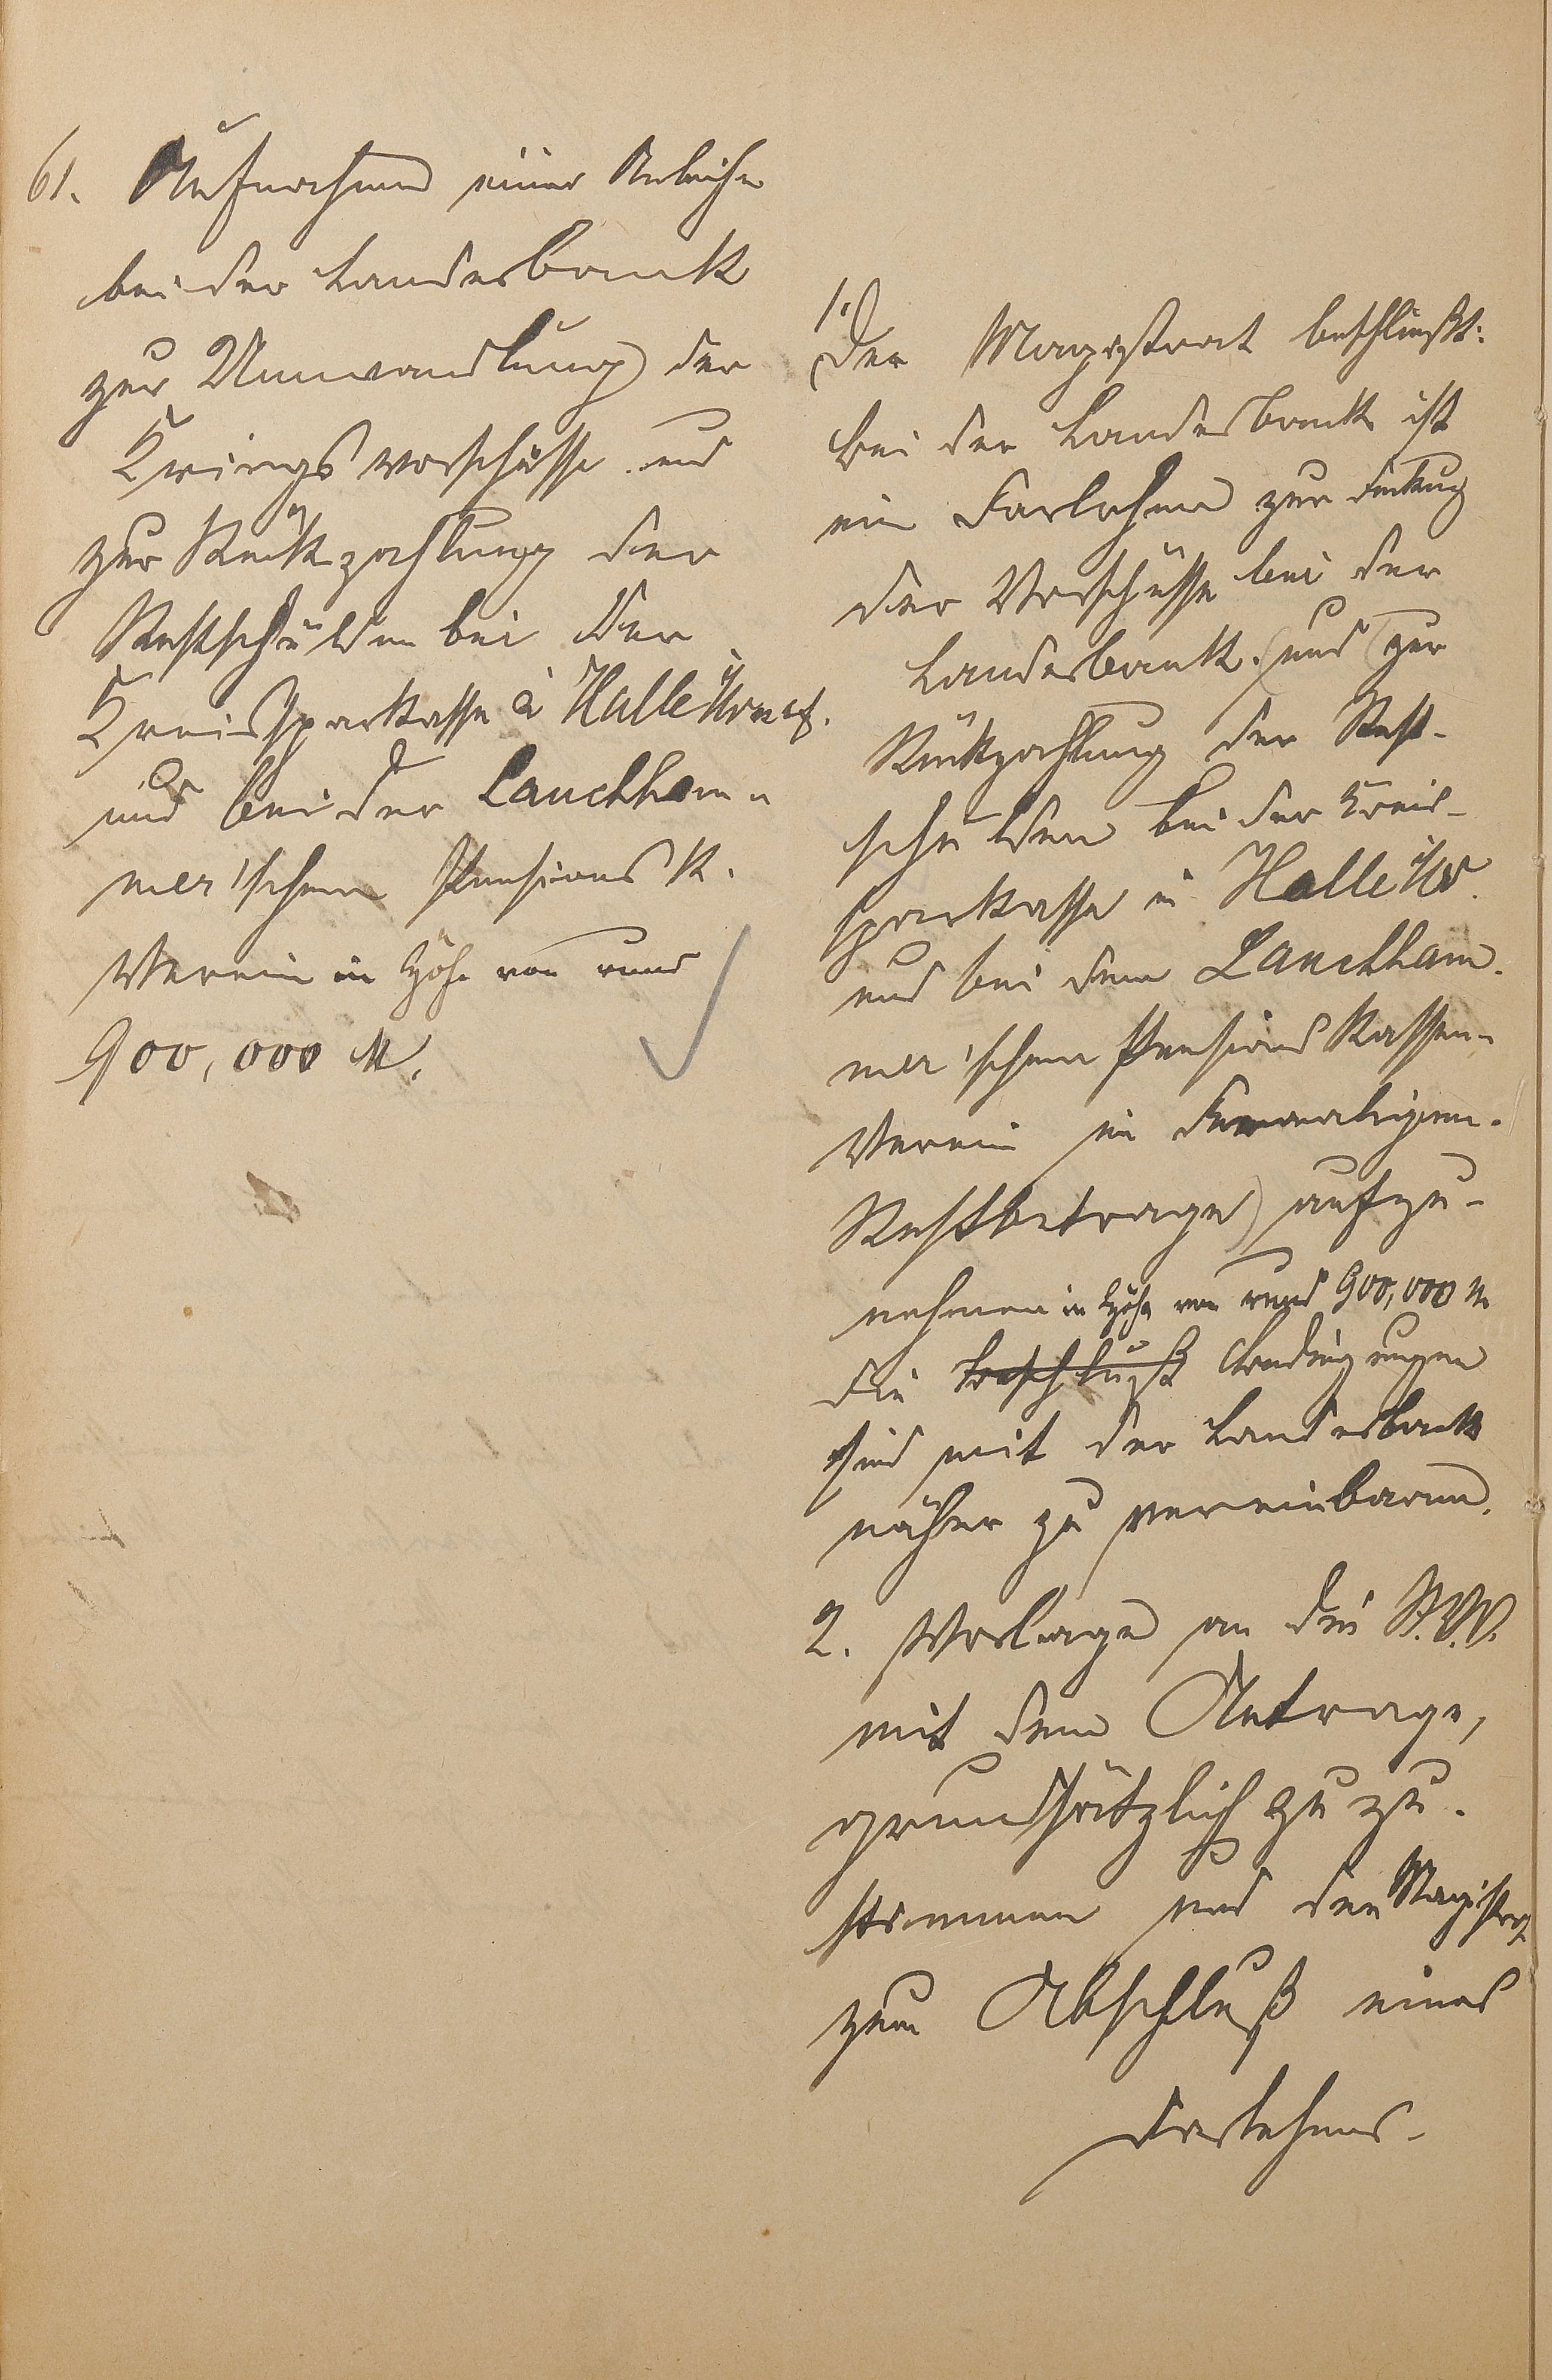 61. Aufnahme einer Anleihe
bei der Landesbank
zur Umwandlung der
Kriegsvorschüsse und
zur Rückzahlung der
Restschulden bei der
Kreissparkasse i Halle i/Westf.
und bei der Lauchham-
mer'schen Pensions K.
Verein in Höhe von rund
900,000 M.
1. Der Magistrat beschließt:
Bei der Landesbank ist
ein Darlehen zur Deckung
der Vorschüsse bei der
Landesbank (und (zur
Rückzahlung der Rest-
schulden bei der Kreis-
sparkasse in Halle i/W.
und bei dem Lauchham-
mer'schen Pensionskassen-
Verein im damaligen
Restbetrage) aufzu-
nehmen in Höhe von rund 900,000 M
Die Beschluß Bedingungen
sind mit der Landesbank
näher zu vereinbaren.
2. Vorlage an die St.V.V.
mit dem Antrage,
grundsätzlich zuzu-
stimmen und den Magistrat
zum Abschluß eines
Darlehens.